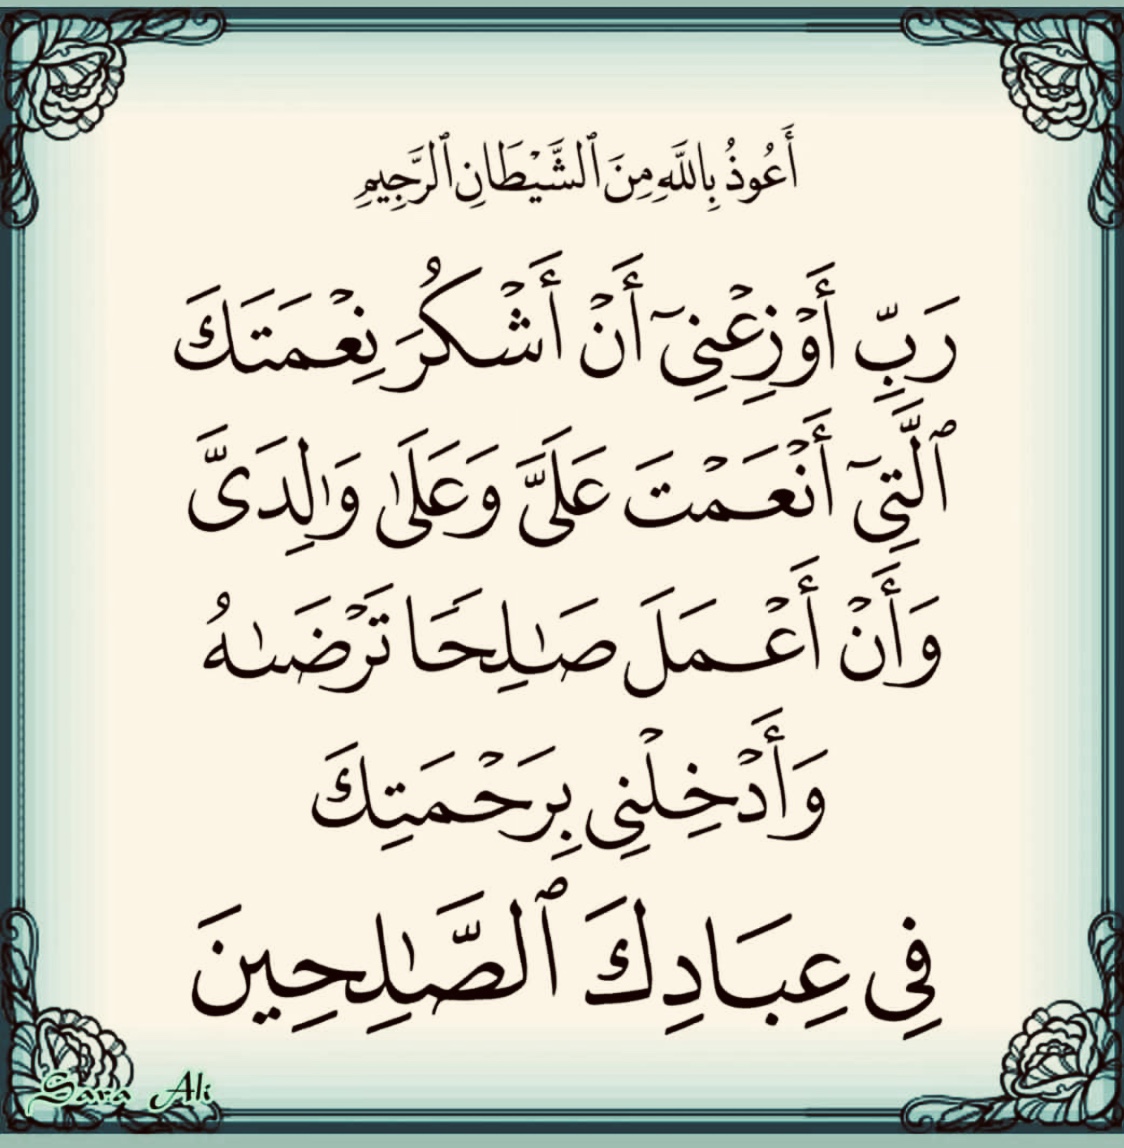 أَعُوذُ بِاللَّهِ مِنَ ٱلشَّيْطَانِ ٱلرَّجِيمِ
رَبِّ أَوْزِعْنِىٓ أَنْ أَشْكُرَ نِعْمَتَكَ
ٱلَّتِىٓ أَنْعَمْتَ عَلَىَّ وَعَلَىٰ وَٰلِدَىَّ
وَأَنْ أَعْمَلَ صَـٰلِحًا تَرْضَىٰهُ
وَأَدْخِلْنِى بِرَحْمَتِكَ
فِى عِبَادِكَ ٱلصَّـٰلِحِينَ
Sara Ali